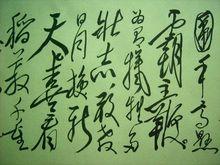 黑手高懸
霸主鞭
為有犧牲多
壮志敢教
日月换新
天喜看
稻菽千重